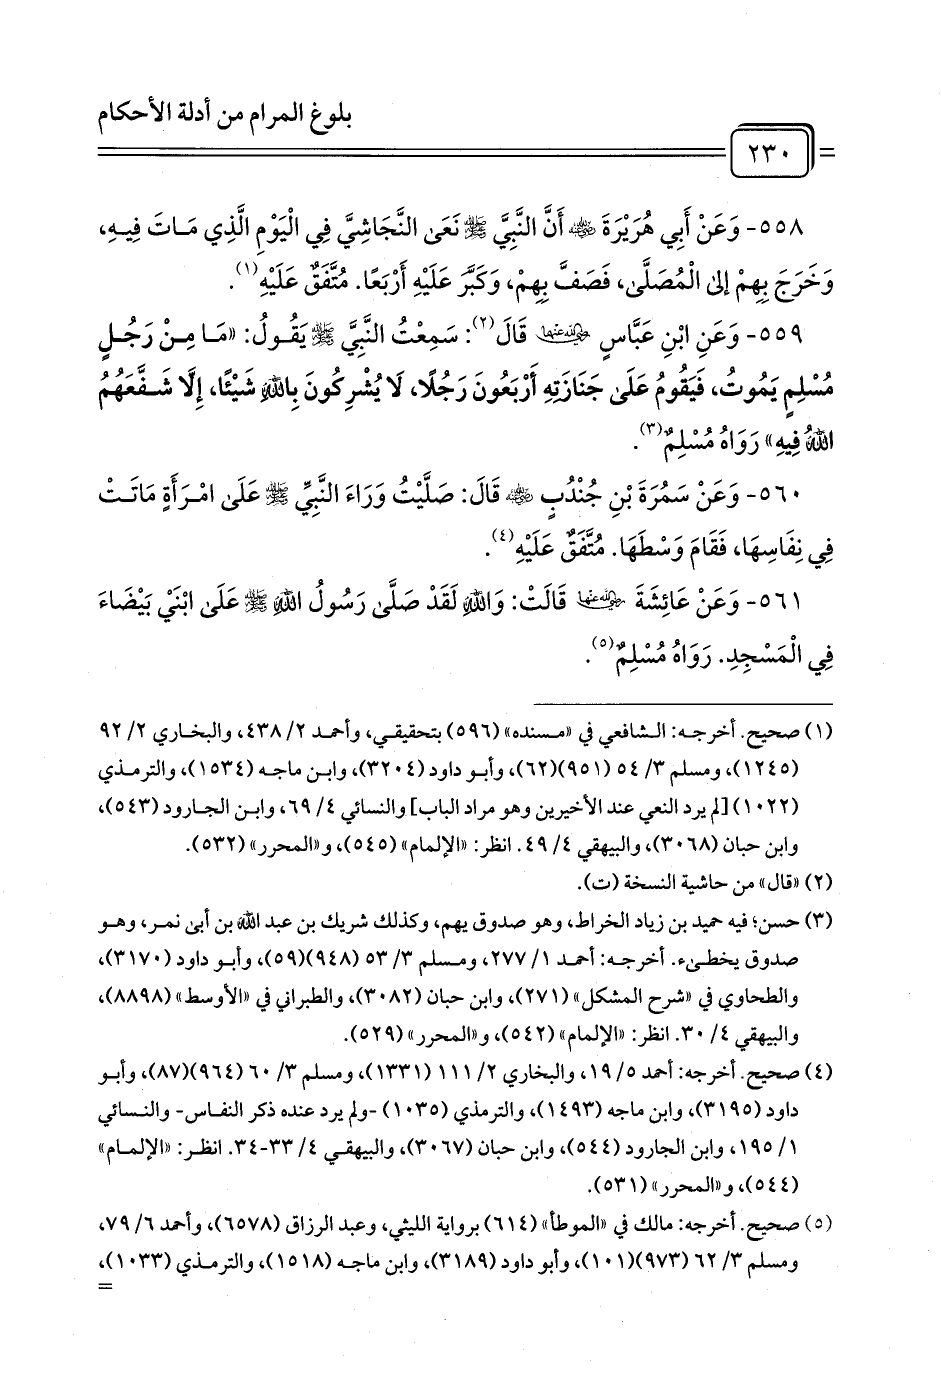 بلوغ المرام من أدلة الأحكام
٢٣٠
٥٥٨- وَعَنْ أَبِي هُرَيْرَةَ ﵁ أَنَّ النَّبِيَّ ﷺ نَعَى النَّجَاشِيَّ فِي الْيَوْمِ الَّذِي مَاتَ فِيهِ،
وَخَرَجَ بِهِمْ إِلَى الْمُصَلَّى، فَصَفَّ بِهِمْ، وَكَبَّرَ عَلَيْهِ أَرْبَعًا. مُتَّفَقٌ عَلَيْهِ(١).
٥٥٩- وَعَنِ ابْنِ عَبَّاسٍ ﵄ قَالَ(٢): سَمِعْتُ النَّبِيَّ ﷺ يَقُولُ: «مَا مِنْ رَجُلٍ
مُسْلِمٍ يَمُوتُ، فَيَقُومُ عَلَى جَنَازَتِهِ أَرْبَعُونَ رَجُلًا، لَا يُشْرِكُونَ بِاللهِ شَيْئًا، إِلَّا شَفَّعَهُمُ
اللهُ فِيهِ» رَوَاهُ مُسْلِمٌ(٣).
٥٦٠- وَعَنْ سَمُرَةَ بْنِ جُنْدُبٍ ﵁ قَالَ: صَلَّيْتُ وَرَاءَ النَّبِيِّ ﷺ عَلَى امْرَأَةٍ مَاتَتْ
فِي نِفَاسِهَا، فَقَامَ وَسْطَهَا. مُتَّفَقٌ عَلَيْهِ(٤).
٥٦١- وَعَنْ عَائِشَةَ ﵂ قَالَتْ: وَاللهِ لَقَدْ صَلَّى رَسُولُ اللهِ ﷺ عَلَى ابْنَيْ بَيْضَاءَ
فِي الْمَسْجِدِ. رَوَاهُ مُسْلِمٌ(٥).
(١) صحيح. أخرجه: الشافعي في «مسنده» (٥٩٦) بتحقيقي، وأحمد ٢/ ٤٣٨، والبخاري ٢/ ٩٢
(١٢٤٥)، ومسلم ٣/ ٥٤ (٩٥١)(٦٢)، وأبو داود (٣٢٠٤)، وابن ماجه (١٥٣٤)، والترمذي
(١٠٢٢) [لم يرد النعي عند الأخيرين وهو مراد الباب] والنسائي ٤/ ٦٩، وابن الجارود (٥٤٣)،
وابن حبان (٣٠٦٨)، والبيهقي ٤/ ٤٩. انظر: «الإلمام» (٥٤٥)، و«المحرر» (٥٣٢).
(٢) «قال» من حاشية النسخة (ت).
(٣) حسن؛ فيه حميد بن زياد الخراط، وهو صدوق يهم، وكذلك شريك بن عبد الله بن أبي نمر، وهو
صدوق يخطىء. أخرجه: أحمد ١/ ٢٧٧، ومسلم ٣/ ٥٣ (٩٤٨)(٥٩)، وأبو داود (٣١٧٠)،
والطحاوي في «شرح المشكل» (٢٧١)، وابن حبان (٣٠٨٢)، والطبراني في «الأوسط» (٨٨٩٨)،
والبيهقي ٤/ ٣٠. انظر: «الإلمام» (٥٤٢)، و«المحرر» (٥٢٩).
(٤) صحيح. أخرجه: أحمد ٥/ ١٩، والبخاري ٢/ ١١١ (١٣٣١)، ومسلم ٣/ ٦٠ (٩٦٤)(٨٧)، وأبو
داود (٣١٩٥)، وابن ماجه (١٤٩٣)، والترمذي (١٠٣٥) -ولم يرد عنده ذكر النفاس- والنسائي
١/ ١٩٥، وابن الجارود (٥٤٤)، وابن حبان (٣٠٦٧)، والبيهقي ٤/ ٣٣-٣٤. انظر: «الإلمام»
(٥٤٤)، و«المحرر» (٥٣١).
(٥) صحيح. أخرجه: مالك في «الموطأ» (٦١٤) برواية الليثي، وعبد الرزاق (٦٥٧٨)، وأحمد ٦/ ٧٩،
ومسلم ٣/ ٦٢ (٩٧٣)(١٠١)، وأبو داود (٣١٨٩)، وابن ماجه (١٥١٨)، والترمذي (١٠٣٣)،
=